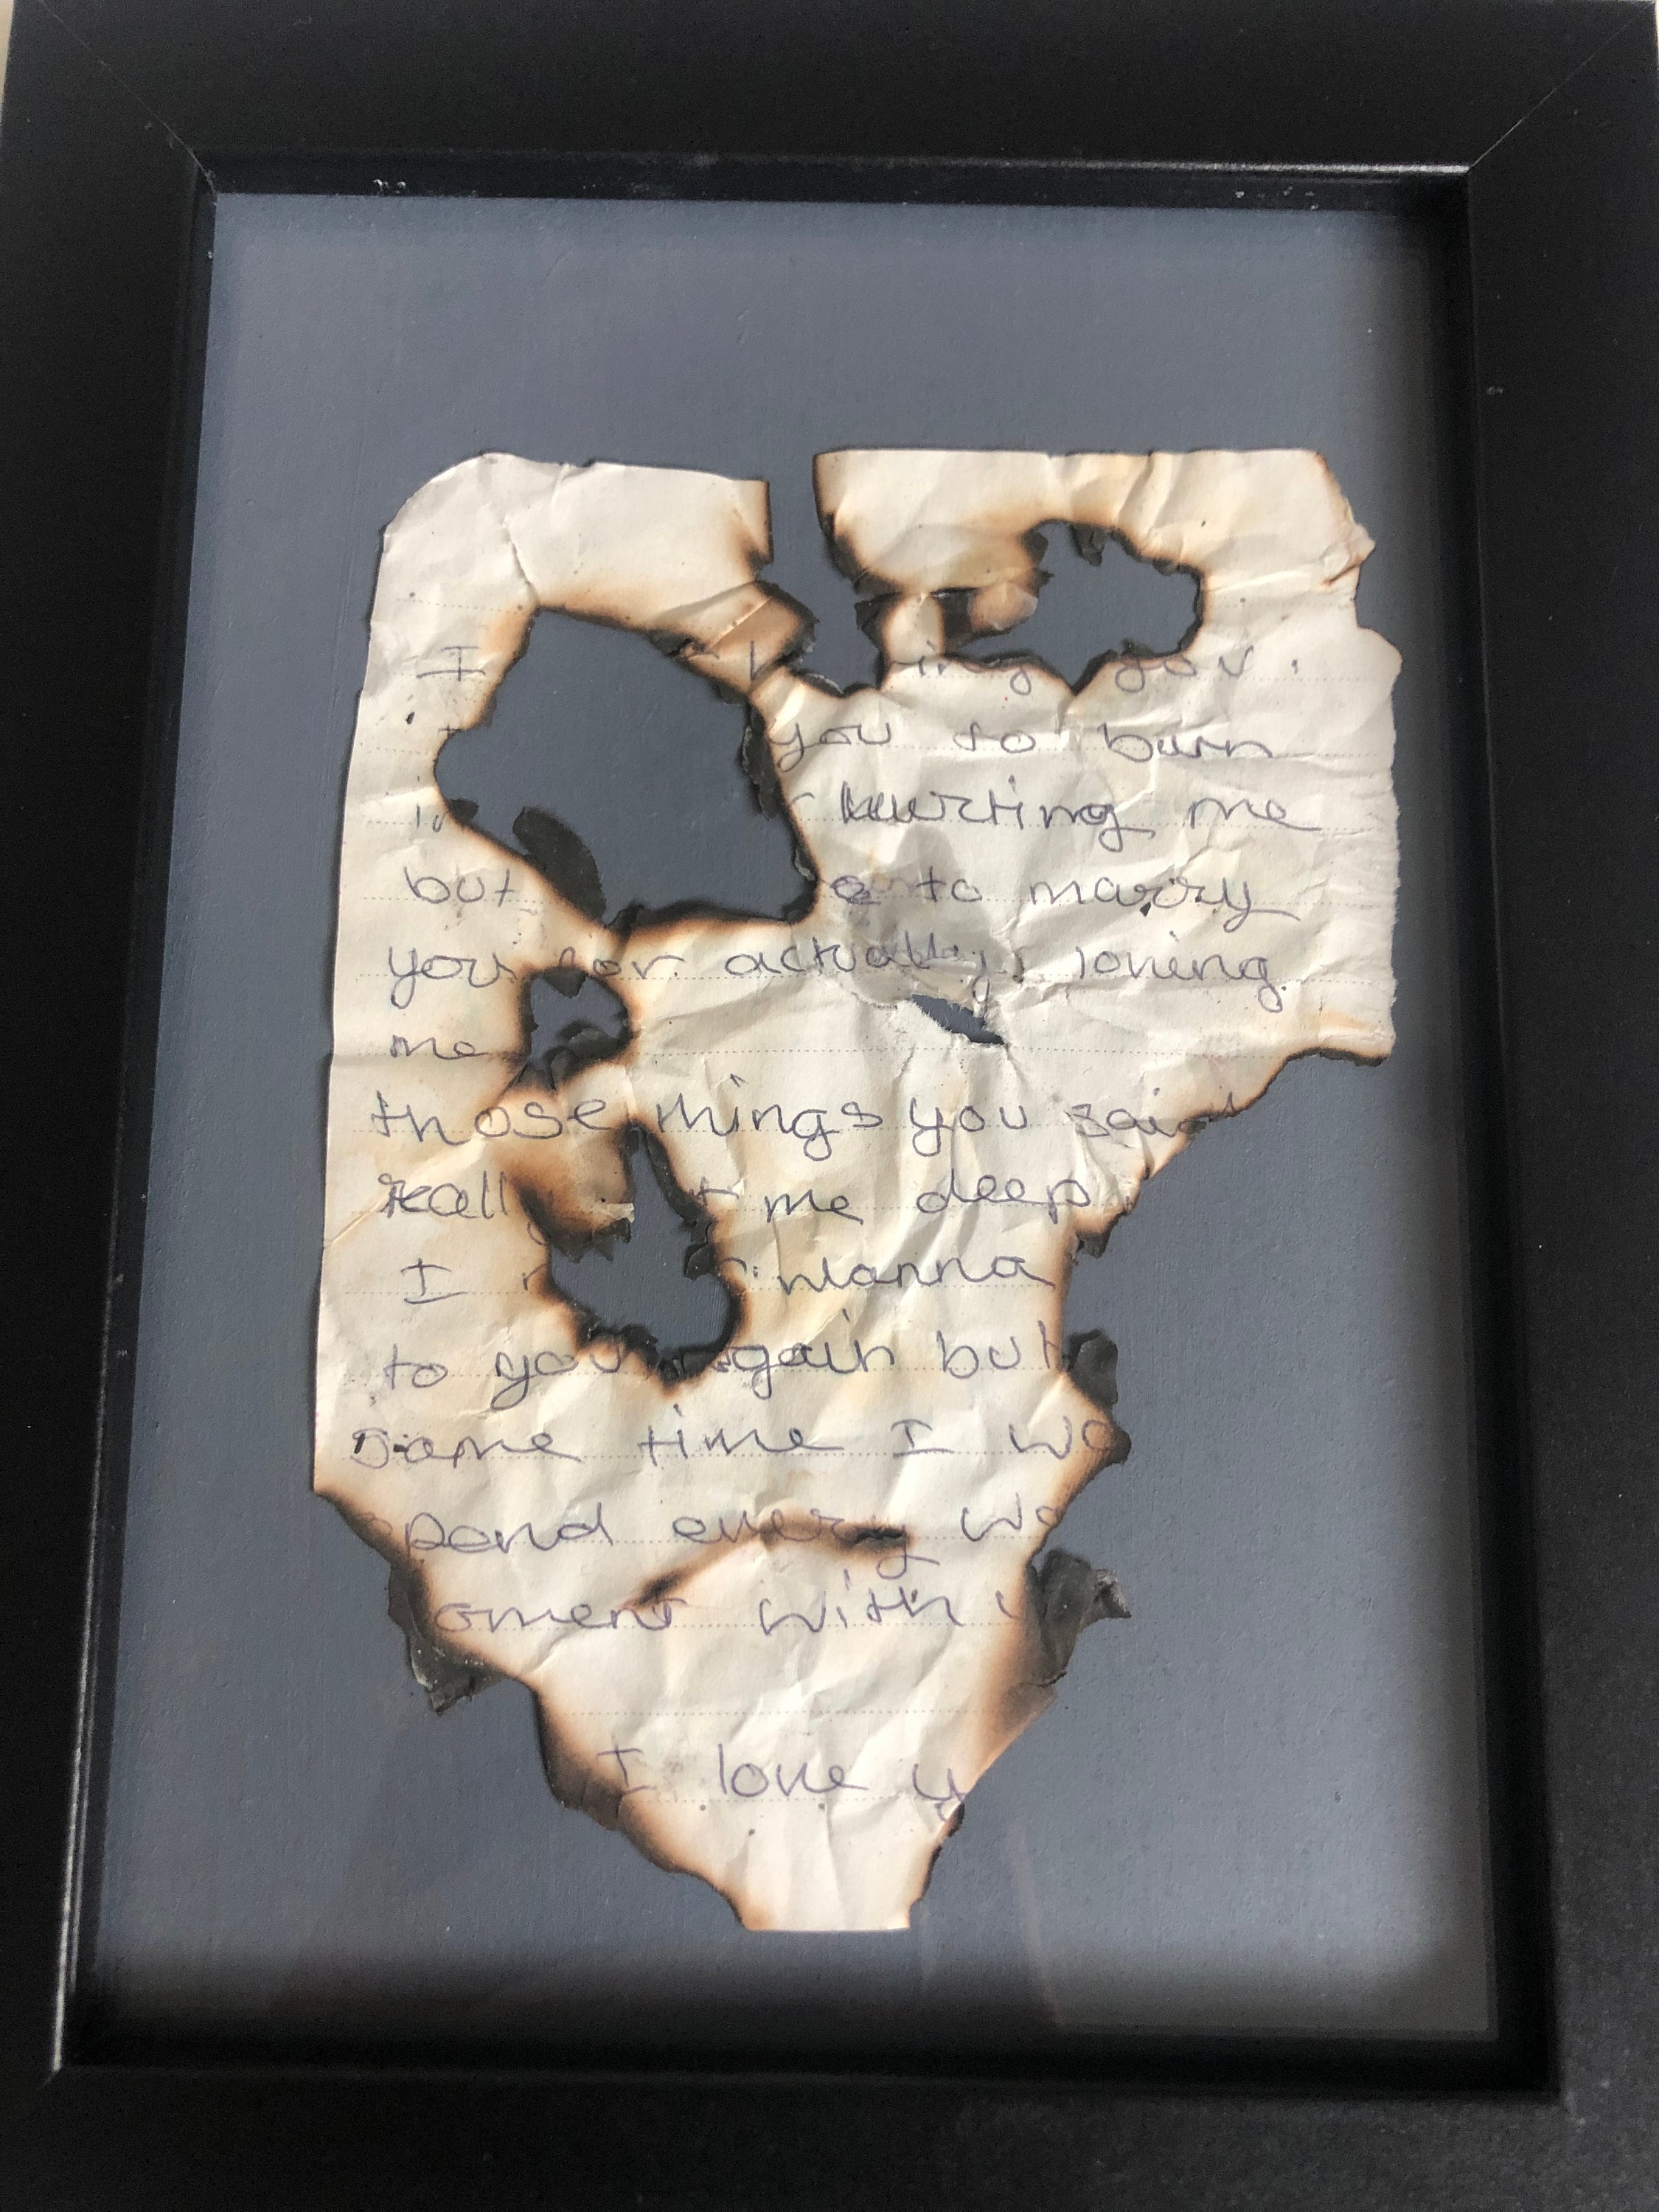 I ing you.
you to burn
hurting me
but to marry
you for actually loving
me
those things you said
reall me deep
I wanna
to you again but
same time I wa
pend every wa
oment with
I love y